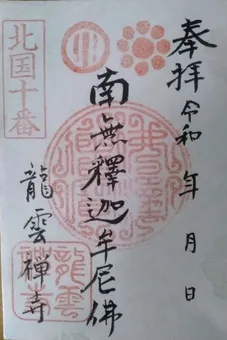 奉拝 令和 年 月 日
南無釋迦牟尼佛
北国十番
龍雲禅寺